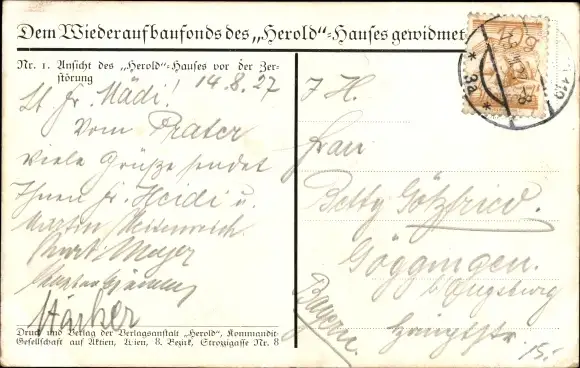 Dem Wiederaufbaufonds des „Herold“-Hauses gewidmet.
Nr. 1. Ansicht des „Herold“-Hauses vor der Zer-
störung
14.8.27
Lb. Fr. Mädi!
Vom Prater
viele Grüße sendet
Ihnen Fr. Heidi u.
Martin
Kurt Mayer
Stärker
Druck und Verlag der Verlagsanstalt „Herold“, Kommandit-
Gesellschaft auf Aktien, Wien, 8. Bezirk, Strozzigasse Nr. 8
I. H.
Frau
Betty Götzfried.
Göggingen.
b/ Augsburg
Hauptstr.
Bayern.
15.-